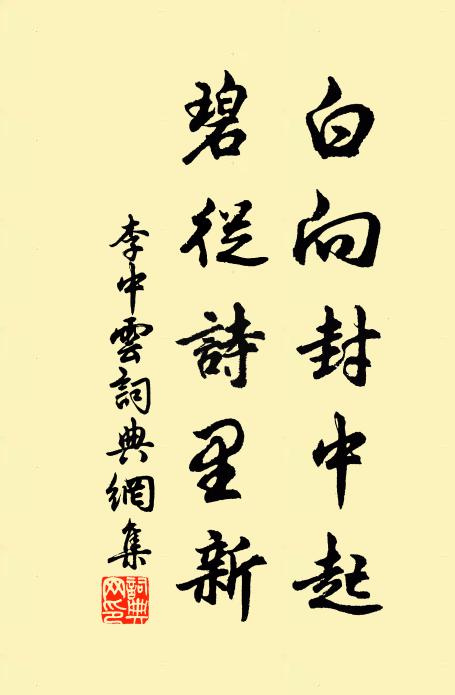 白向封中起
碧從詩里新
李中雲詞典網集
詞典網印